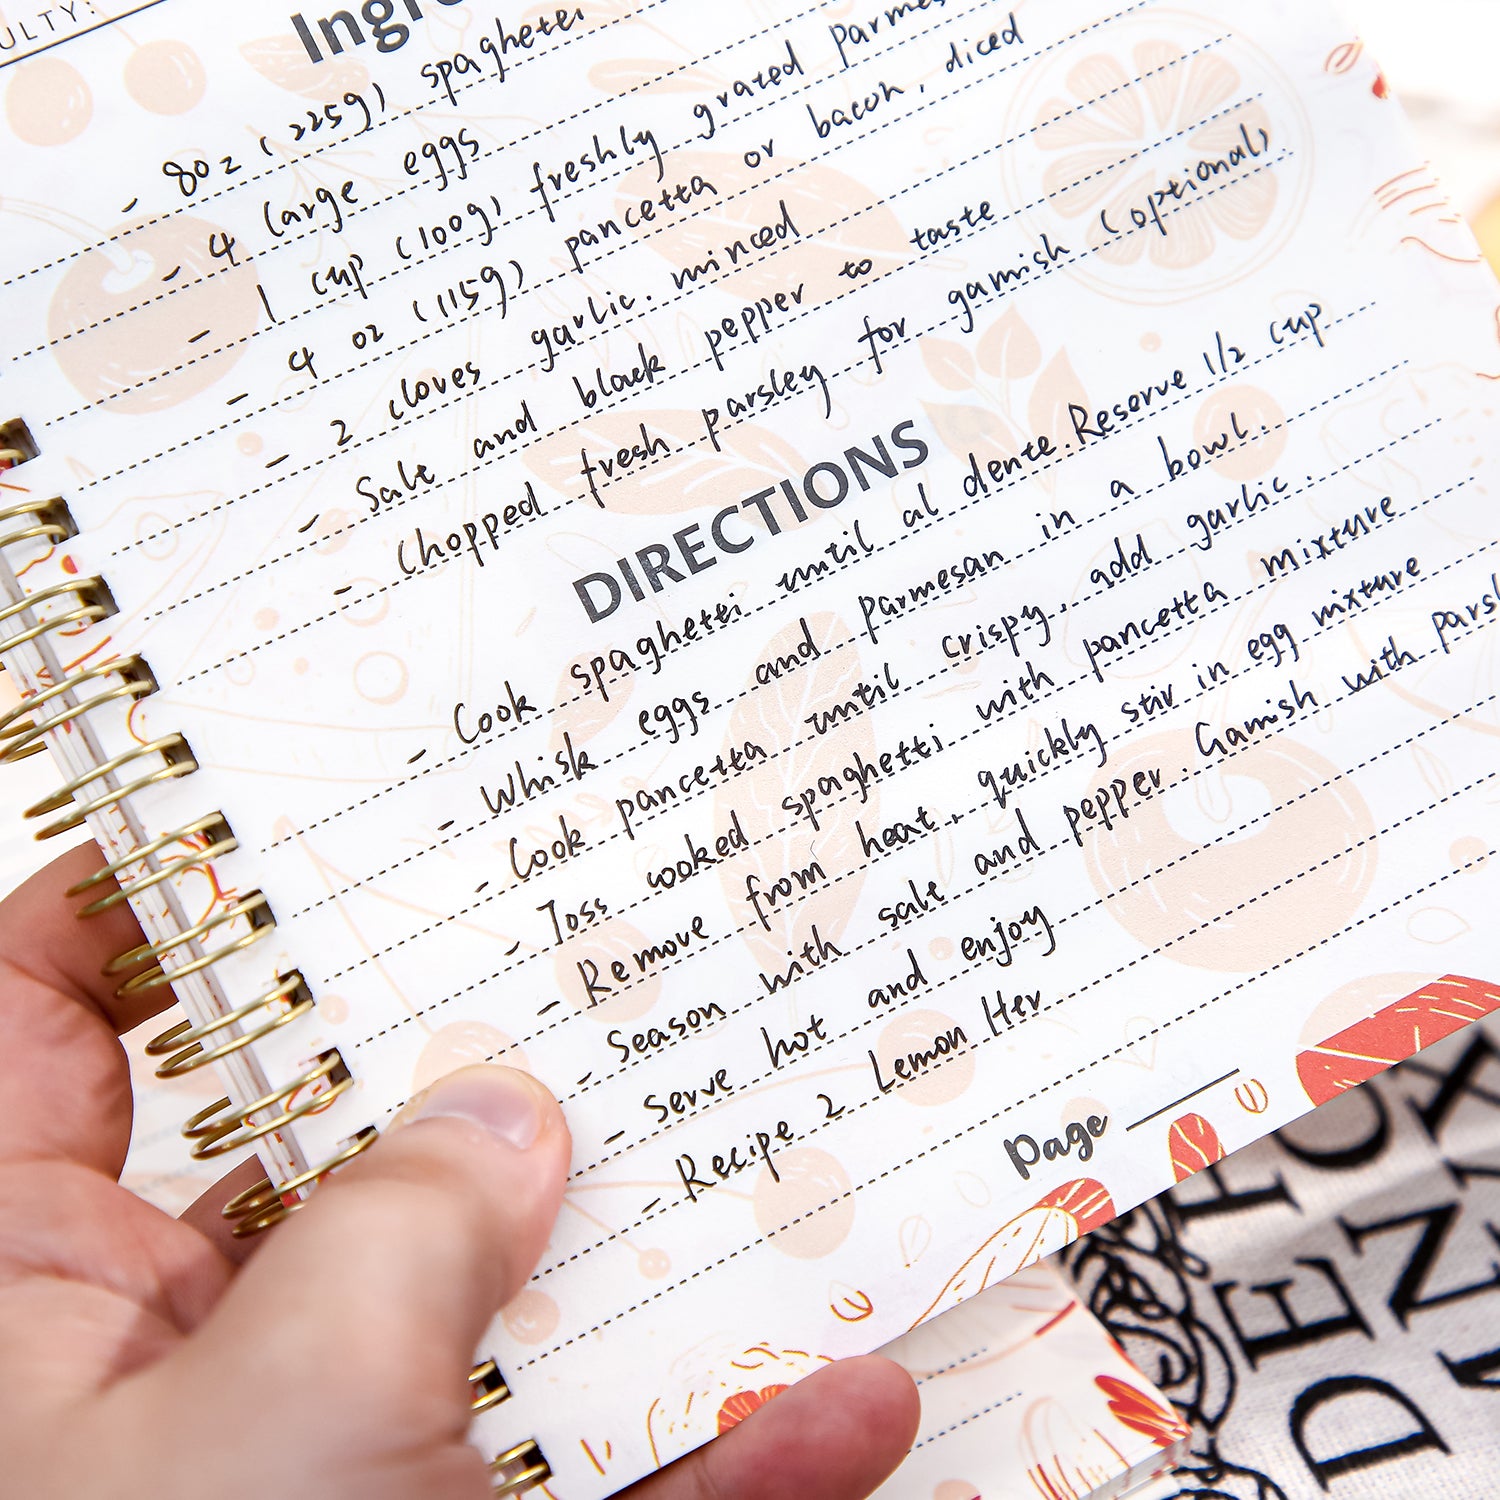 ULTY:
Ingre
- 8oz (225g) spaghetti
- 4 large eggs
- 1 cup (100g) freshly grated Parmes
- 4 oz (115g) pancetta or bacon, diced
- 2 cloves garlic. minced
- Salt and black pepper to taste
- Chopped fresh parsley for garnish (optional)
DIRECTIONS
- Cook spaghetti until al dente. Reserve 1/2 cup
- Whisk eggs and Parmesan in a bowl.
- Cook pancetta until crispy, add garlic.
- Toss cooked spaghetti with pancetta mixture
- Remove from heat, quickly stir in egg mixture
- Season with salt and pepper. Garnish with parsl
- Serve hot and enjoy
- Recipe 2 Lemon Her
Page